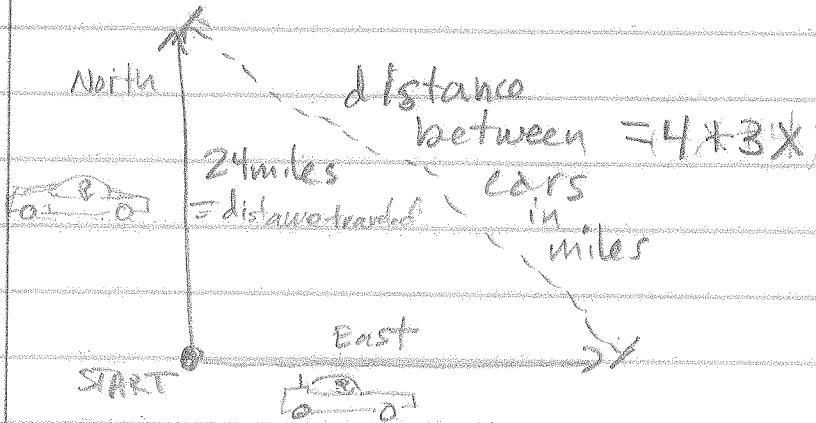 North
distance
between = 4 + 3x
cars
in
miles
24 miles
= distance traveled
East
START